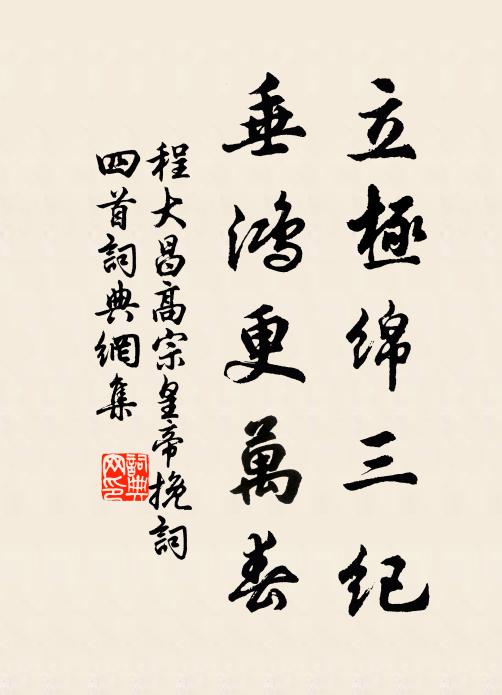 立極綿三紀
垂鴻更萬春
程大昌高宗皇帝挽詞
四首詞典網集
詞典
网印